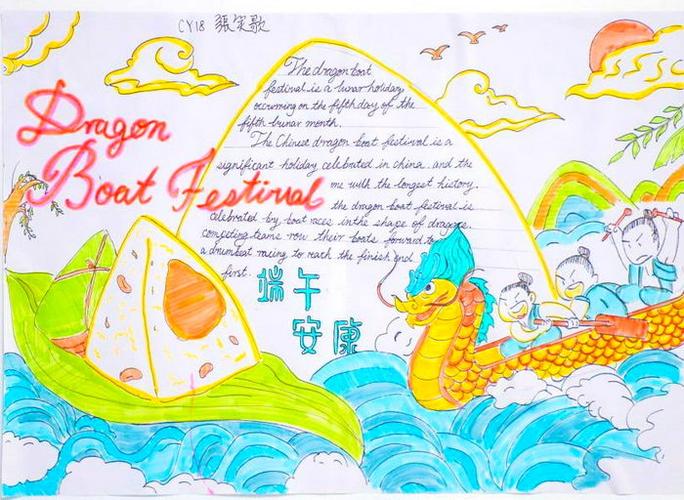 CY18 張 歌
Dragon
Boat Festival
The dragon boat
festival is a lunar holiday,
occurring on the fifth day of the
fifth lunar month.
The Chinese dragon boat festival is a
significant holiday celebrated in china. and the
me with the longest history.
the dragon boat festival is
celebrated by boat races inthe shape of dragons.
competing teams row their boats forward to
a drumbeat racing to reach the finish end
first.
端午
安康